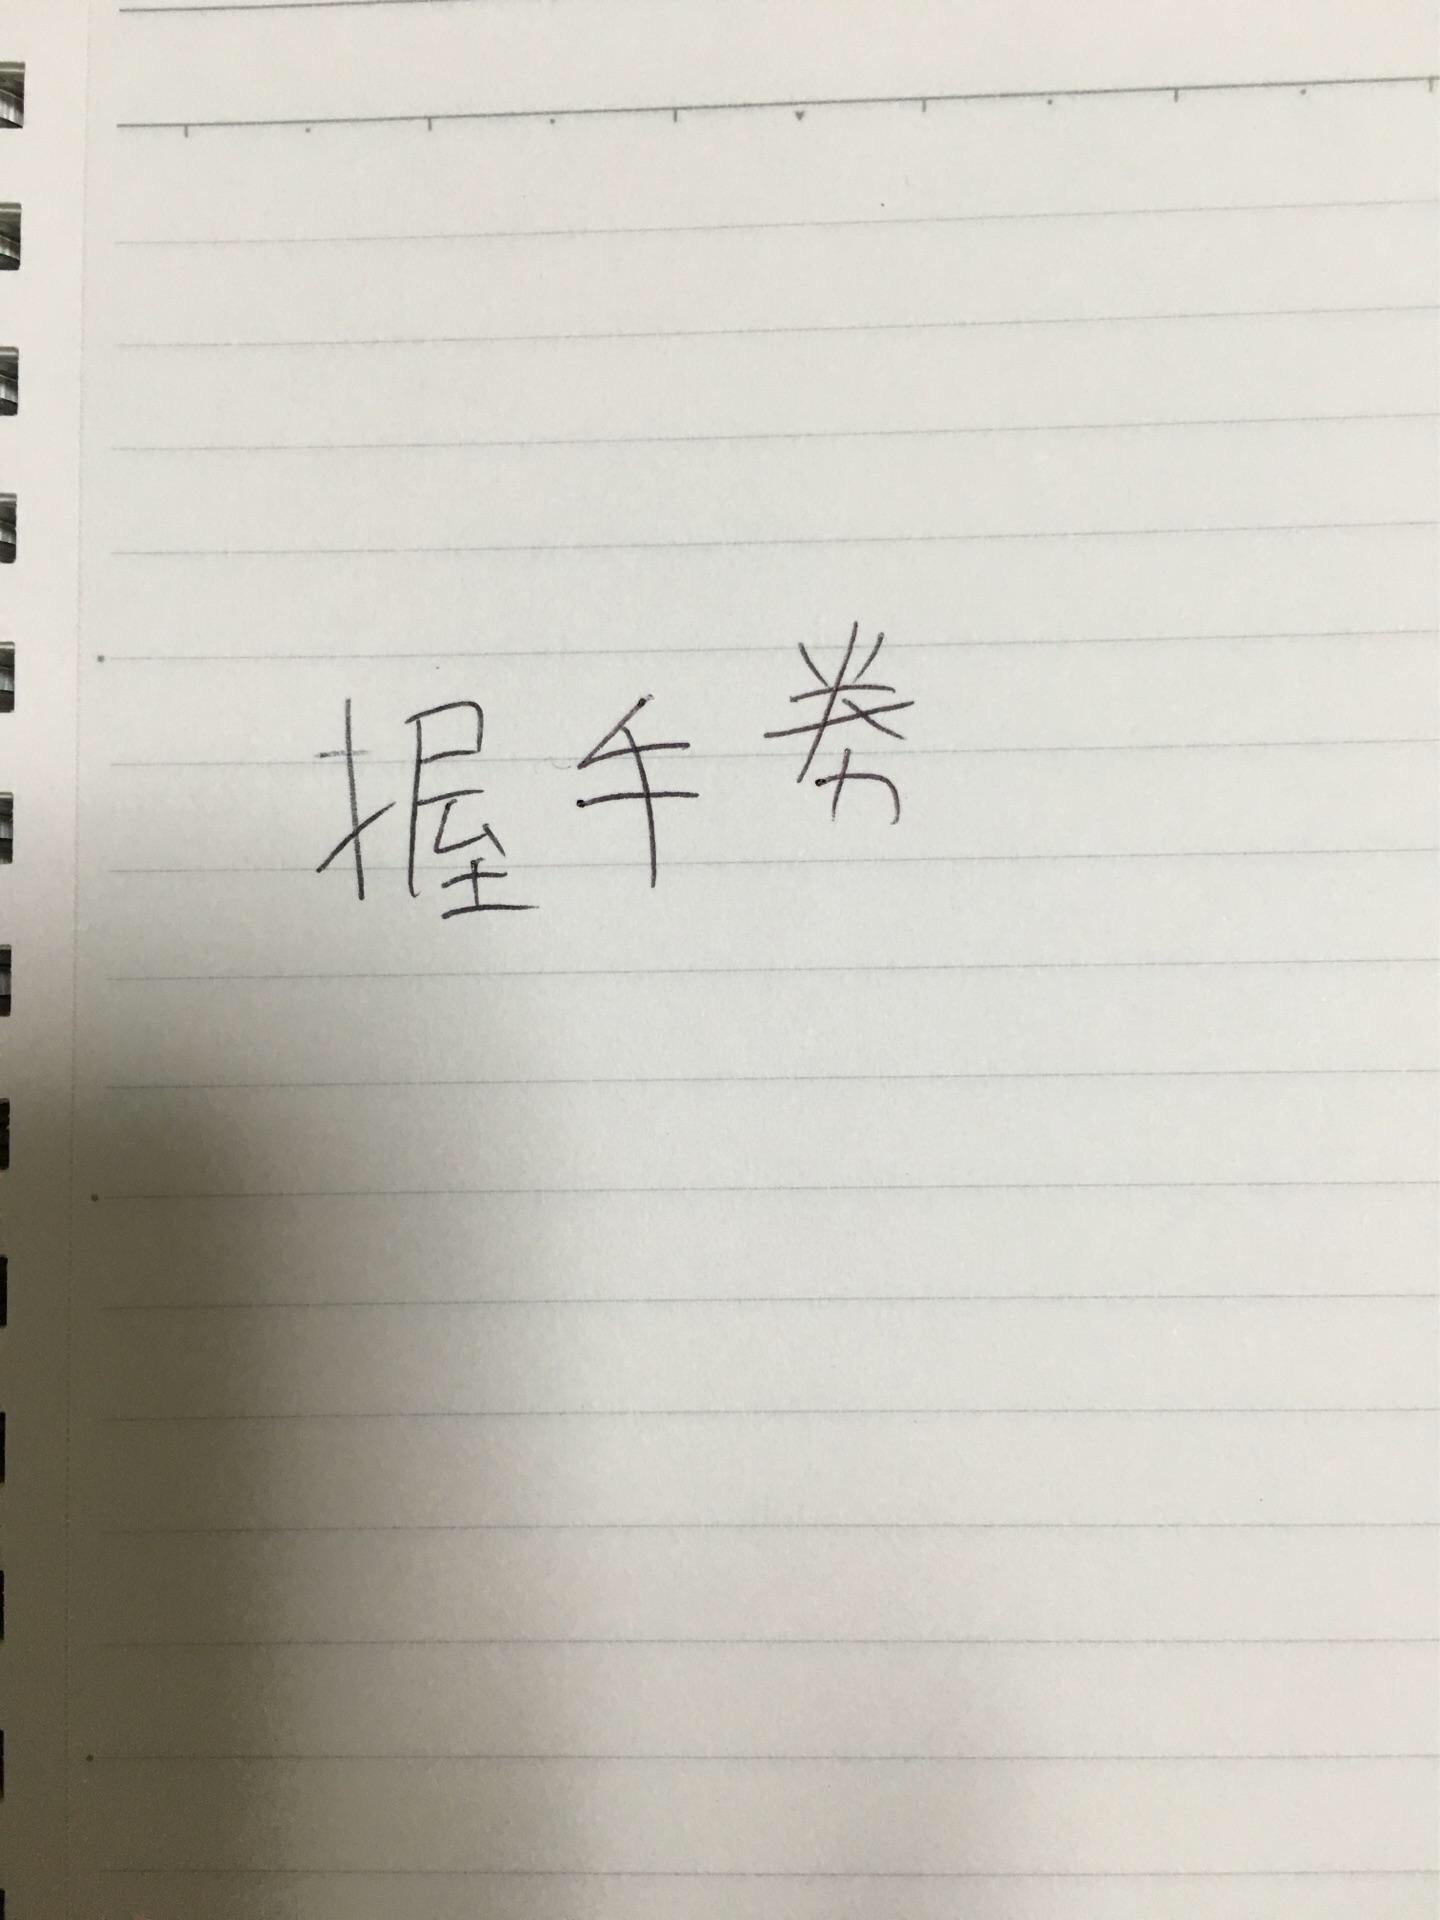 握手券